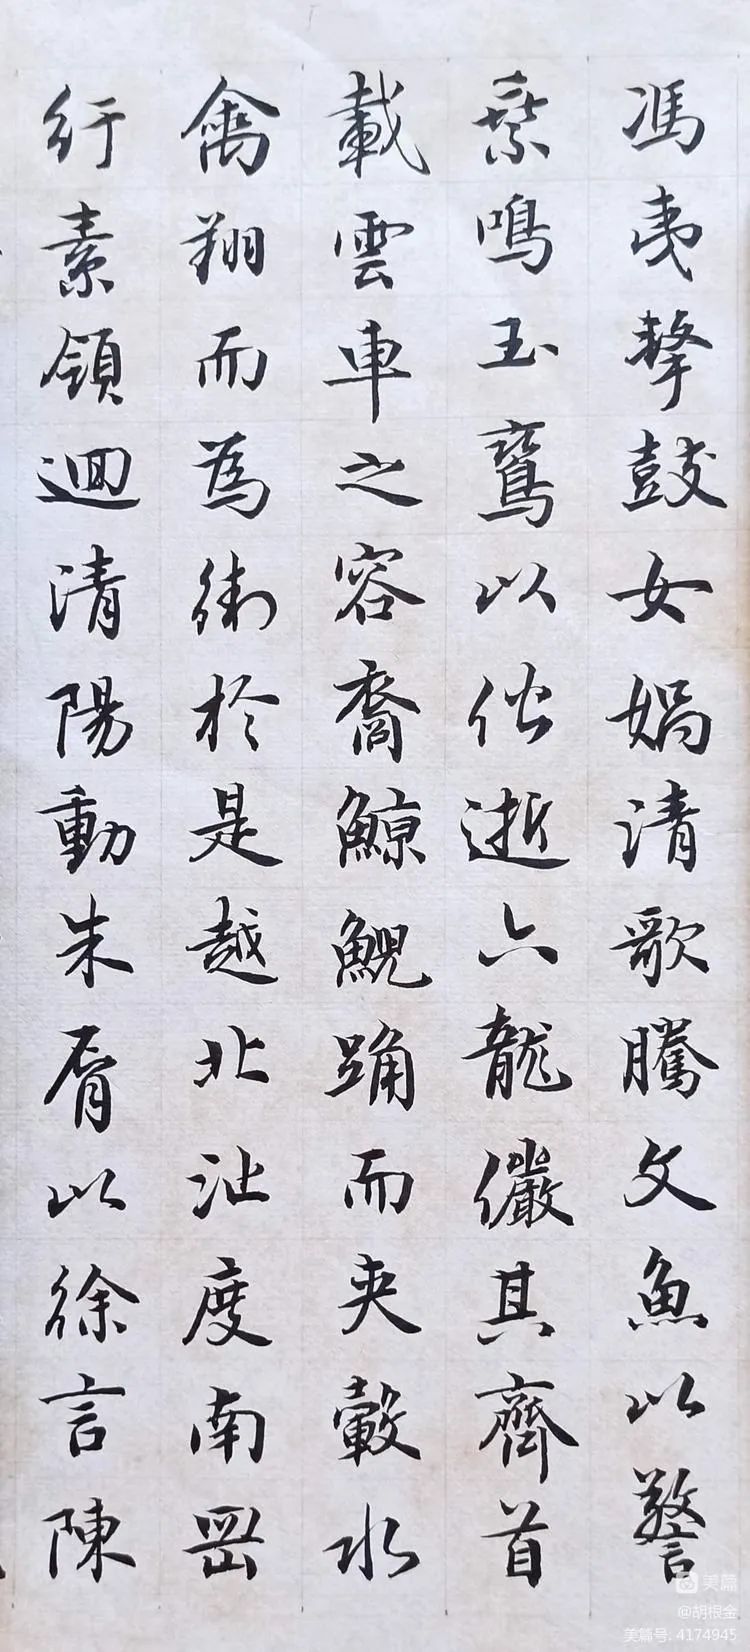 馮夷擊鼓女媧清歌騰文魚以警
椉鳴玉鸞以偕逝六龍儼其齊首
載雲車之容裔鯨鯢踊而夾轂水
禽翔而為衛於是越北沚度南岡
紆素領迴清陽動朱脣以徐言陳
美篇
@胡根金
美篇号: 4174945